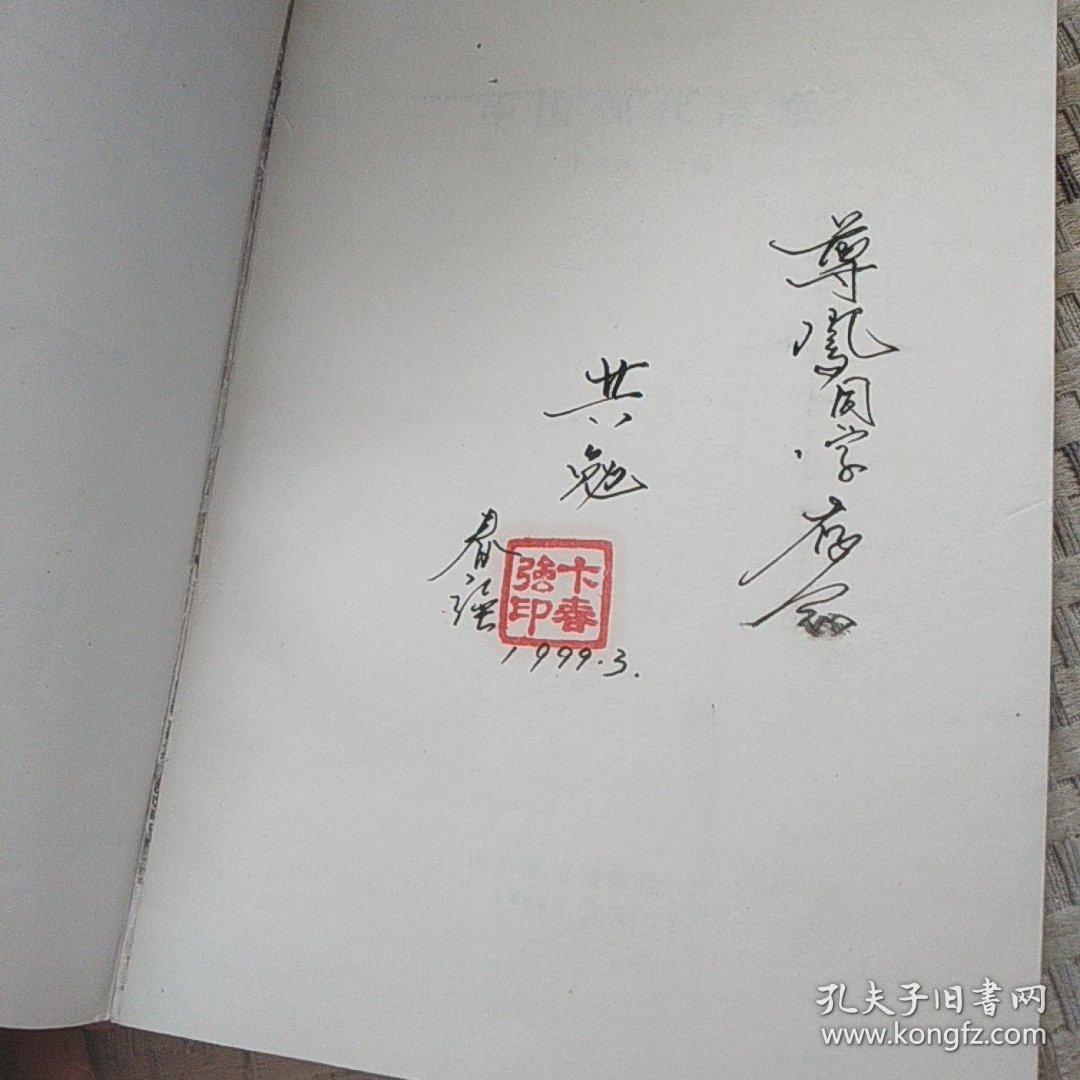 尊鳳同学存念
共勉
春强
卞春強印
1999.3.
孔夫子旧書网
www.kongfz.com